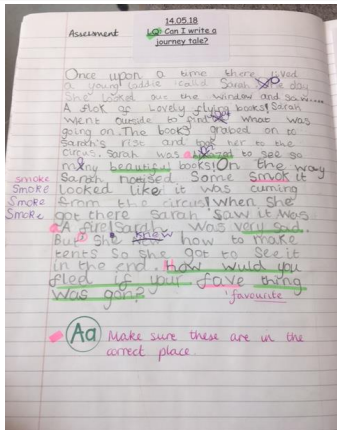 14.05.18
Assessment
LO: Can I write a
journey tale?
Once upon a time there lived
a young called Sarah one day
She looked out the window and saw....
A flok of lovely flying books! Sarah
went outside to find out what was
going on. The books grabed on to
Sarah's rist and took her to the
circus. Sarah was amazed to see so
many beautiful books! On the way
smoke Sarah notised Some smok it
Smoke looked like it was cuming
Smoke from the circus! When she
Smoke got there Sarah saw it was
A fire! Sardh was very sad.
But she knew how to make
tents So she got to see it
in the end. How wuld you
fled if your fave thing
was gon?
favourite
Aa Make sure these are in the
correct place.